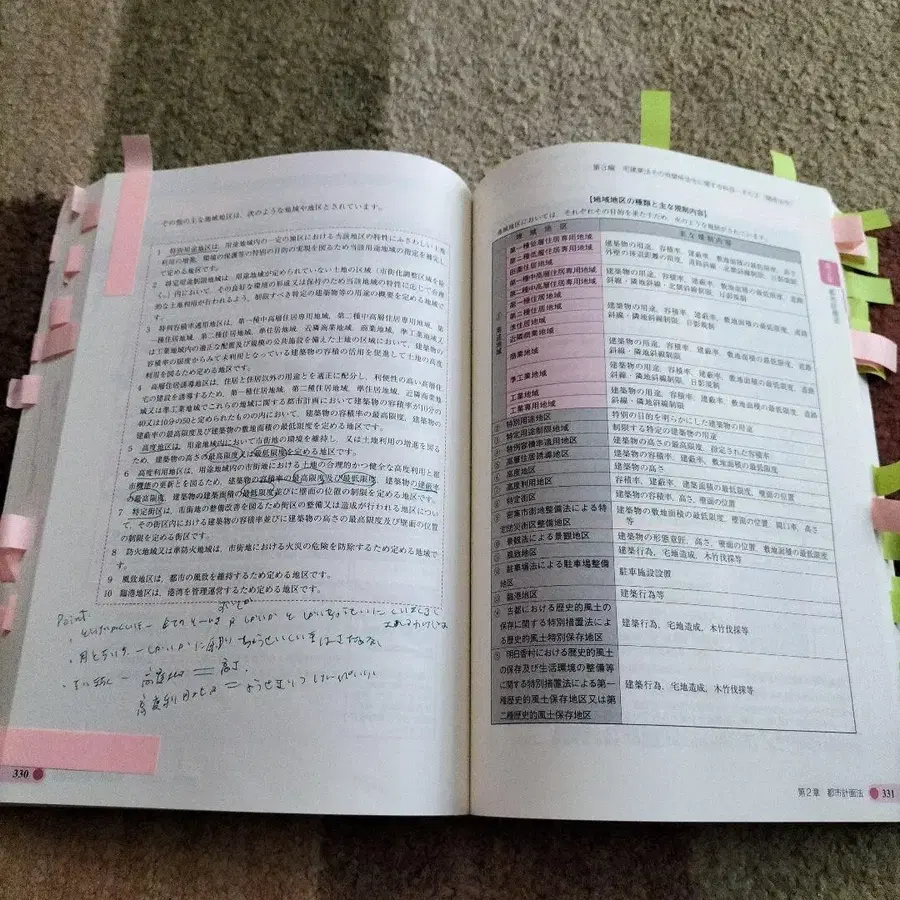 その他の主な地域地区は、次のような地域や地区とされています。
1 特別用途地区は、用途地域内の一定の地区における当該地区の特性にふさわしい土地
利用の増進、環境の保護等の特別の目的の実現を図るため当該用途地域の指定を補完し
て定める地区です。
2 特定用途制限地域は、用途地域が定められていない土地の区域（市街化調整区域を除
く。）内において、その良好な環境の形成又は保持のため当該地域の特性に応じて合理
的な土地利用が行われるよう、制限すべき特定の建築物等の用途の概要を定める地域で
す。
3 特例容積率適用地区は、第一種中高層住居専用地域、第二種中高層住居専用地域、第
一種住居地域、第二種住居地域、準住居地域、近隣商業地域、商業地域、準工業地域又
は工業地域内の適正な配置及び規模の公共施設を備えた土地の区域において、建築物の
容積率の限度からみて未利用となっている建築物の容積の活用を促進して土地の高度
利用を図るため定める地区です。
4 高層住居誘導地区は、住居と住居以外の用途とを適正に配分し、利便性の高い高層住
宅の建設を誘導するため、第一種住居地域、第二種住居地域、準住居地域、近隣商業地
域又は準工業地域でこれらの地域に関する都市計画において建築物の容積率が10分の
40又は10分の50と定められたものの内において、建築物の容積率の最高限度、建築物の
建蔽率の最高限度及び建築物の敷地面積の最低限度を定める地区です。
5 高度地区は、用途地域内において市街地の環境を維持し、又は土地利用の増進を図る
ため、建築物の高さの最高限度又は最低限度を定める地区です。
6 高度利用地区は、用途地域内の市街地における土地の合理的かつ健全な高度利用と都
市機能の更新とを図るため、建築物の容積率の最高限度及び最低限度、建築物の建蔽率
の最高限度、建築物の建築面積の最低限度並びに壁面の位置の制限を定める地区です。
7 特定街区は、市街地の整備改善を図るため街区の整備又は造成が行われる地区につい
て、その街区内における建築物の容積率並びに建築物の高さの最高限度及び壁面の位置
の制限を定める街区です。
8 防火地域又は準防火地域は、市街地における火災の危険を防除するため定める地域で
す。
9 風致地区は、都市の風致を維持するため定める地区です。
10 臨港地区は、港湾を管理運営するため定める地区です。
Point
330
【地域地区の種類と主な規制内容】
地域地区においては、それぞれその目的を果たすため、次のような規制がされています。
地域地区 主な規制内容
第一種低層住居専用地域
第二種低層住居専用地域
田園住居地域
建築物の用途、容積率、建蔽率、敷地面積の最低限度、高さ
第一種中高層住居専用地域
第二種中高層住居専用地域
建築物の用途、容積率、建蔽率、敷地面積の最低限度、道路
斜線・隣地斜線・北側斜線制限、日影規制
第一種住居地域
第二種住居地域
準住居地域
近隣商業地域
建築物の用途、容積率、建蔽率、敷地面積の最低限度、道路
斜線・隣地斜線制限、日影規制
商業地域
建築物の用途、容積率、建蔽率、敷地面積の最低限度、道路
準工業地域
工業地域
工業専用地域
建築物の用途、容積率、建蔽率、敷地面積の最低限度、道路
斜線・隣地斜線制限
特別用途地区 特別の目的を明らかにした建築物の用途
特定用途制限地域 制限する特定の建築物の用途
特例容積率適用地区 建築物の高さの最高限度、指定された容積率
高層住居誘導地区 建築物の容積率、建蔽率、敷地面積の最低限度
高度地区 建築物の高さ
高度利用地区 容積率、建蔽率、建築面積の最低限度、壁面の位置
特定街区 建築物の容積率、高さ、壁面の位置
密集市街地整備法による特
定防災街区整備地区
建築物の敷地面積の最低限度、壁面の位置、間口率、高さ
等
景観法による景観地区 建築物の形態意匠、高さ、壁面の位置、敷地面積の最低限度
風致地区 建築行為、宅地造成、木竹伐採等
駐車場法による駐車場整備
地区
駐車施設設置
臨港地区 建築行為等
古都における歴史的風土の
保存に関する特別措置法によ
る歴史的風土特別保存地区
建築行為、宅地造成、木竹伐採等
明日香村における歴史的風土
の保存及び生活環境の整備等
に関する特別措置法による第一
種歴史的風土保存地区又は第
二種歴史的風土保存地区
建築行為、宅地造成、木竹伐採等
第2章 都市計画法 331